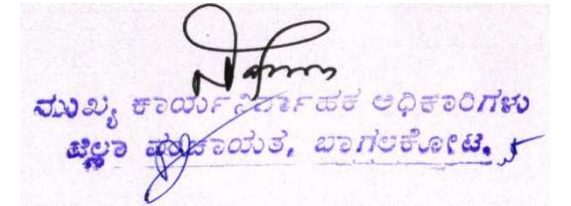 ಮುಖ್ಯ ಕಾರ್ಯನಿರ್ವಾಹಕ ಅಧಿಕಾರಿಗಳು
ಜಿಲ್ಲಾ ಪಂಚಾಯತ, ಬಾಗಲಕೋಟ.